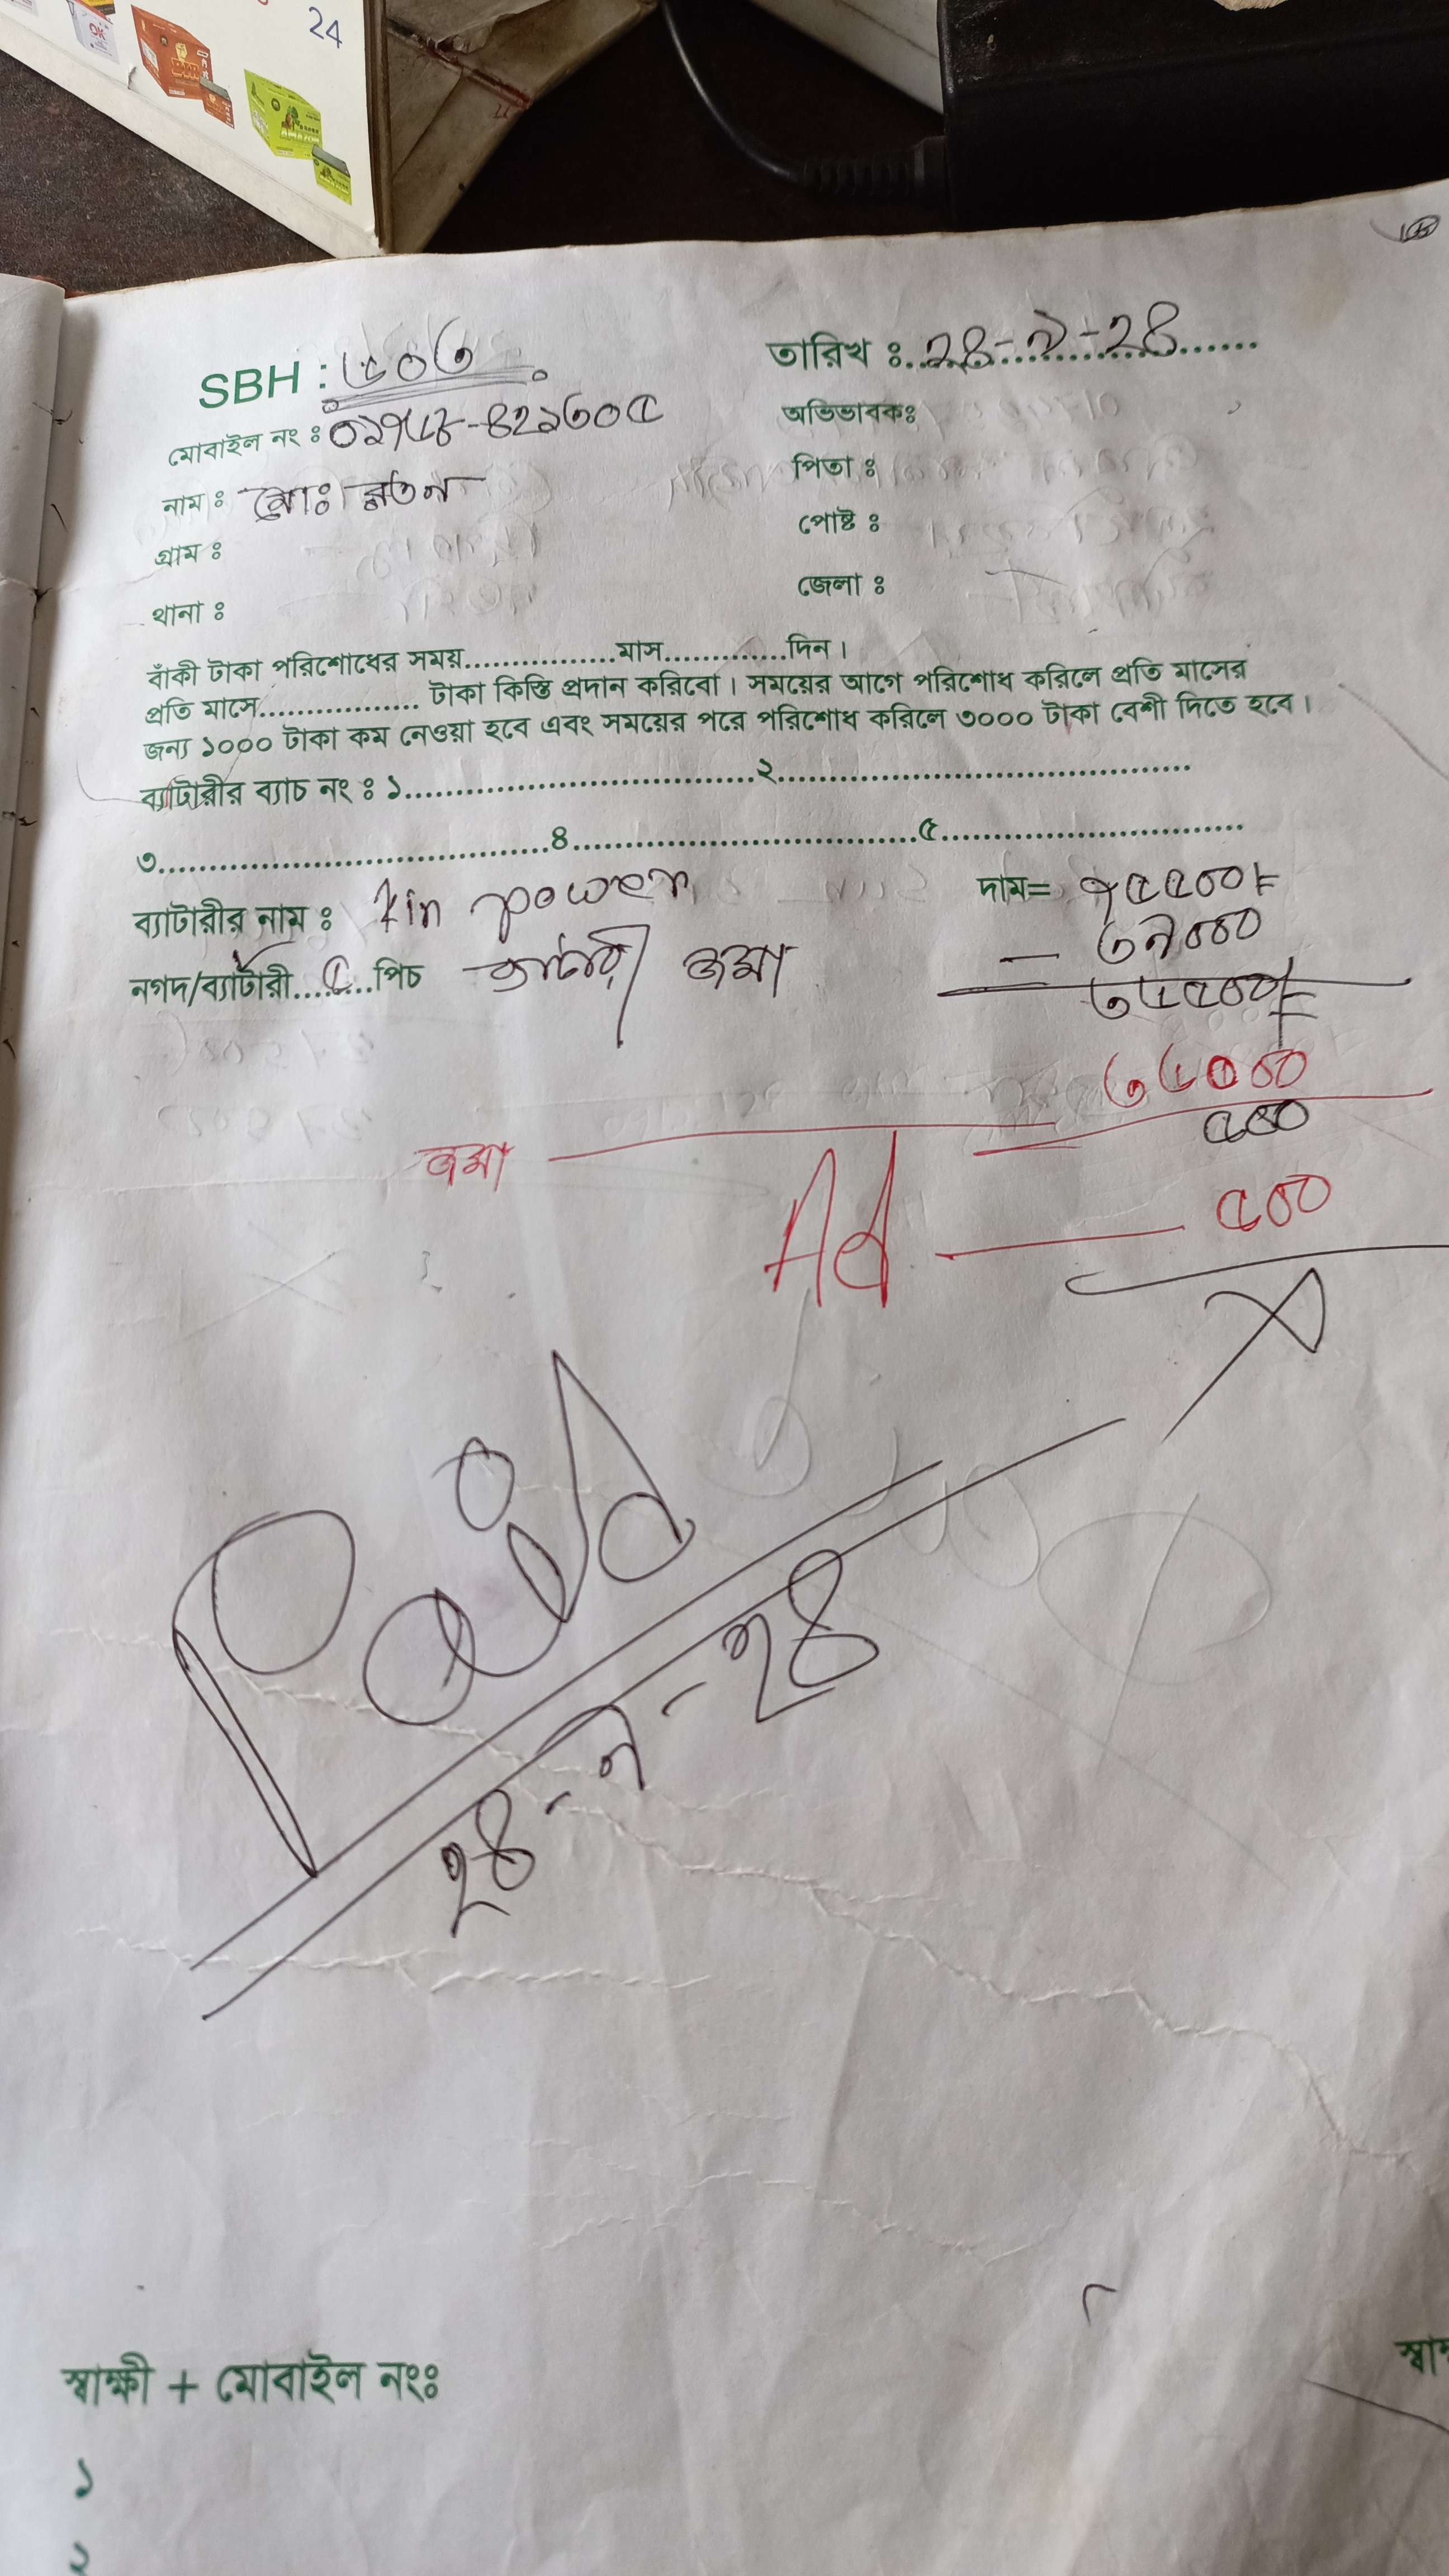 24
AMAZON
SBH : ৬০৩
তারিখ ঃ ২৪-৯-২৪
মোবাইল নং ঃ
অভিভাবকঃ
নাম ঃ মোঃ রতন
পিতা ঃ
গ্রাম ঃ
পোষ্ট ঃ
থানা ঃ
জেলা ঃ
বাঁকী টাকা পরিশোধের সময়.................মাস..............দিন।
প্রতি মাসে.................. টাকা কিস্তি প্রদান করিবো। সময়ের আগে পরিশোধ করিলে প্রতি মাসের
জন্য ১০০০ টাকা কম নেওয়া হবে এবং সময়ের পরে পরিশোধ করিলে ৩০০০ টাকা বেশী দিতে হবে।
ব্যাটারীর ব্যাচ নং ঃ ১........................................২...............................................
৩...........................................৪......................................৫...................................
ব্যাটারীর নাম ঃ kin power
দাম= ৭৫৫০০৳
নগদ/ব্যাটারী.........৫..পিচ ব্যাটারী জমা
— ৩৯০০০
৩৬৫০০৳
জমা — ৩৬০০০
৫০০
Ad — ৫০০
X
Paid
২৪-৯-২৪
স্বাক্ষী + মোবাইল নংঃ
১
২